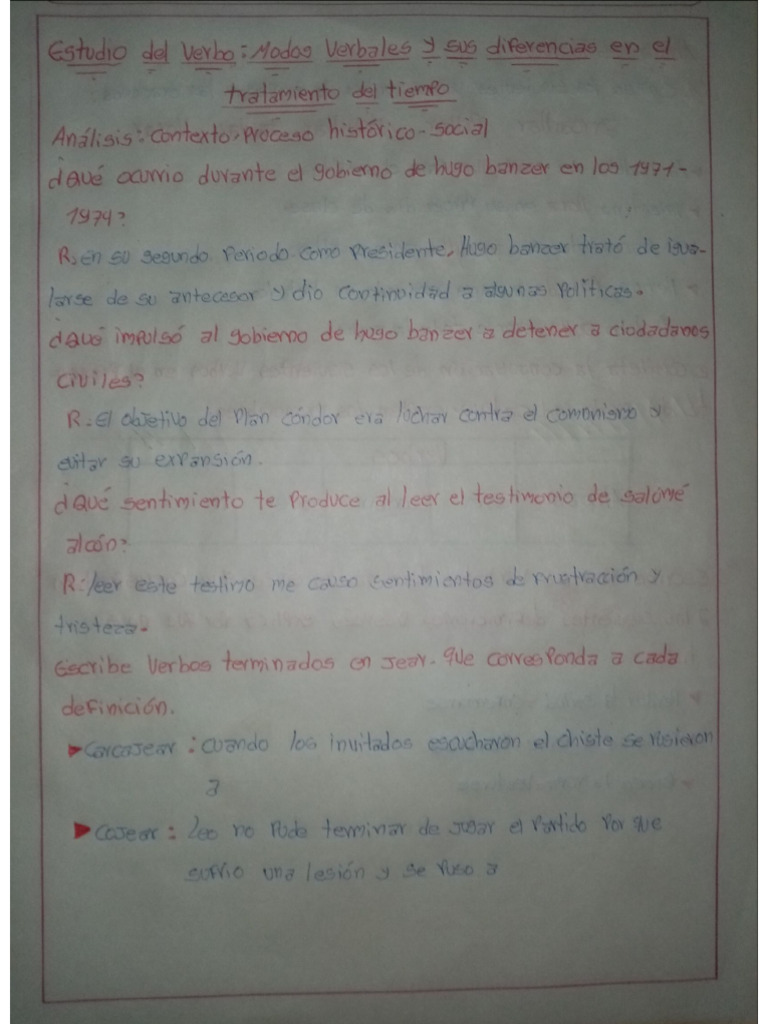 Estudio del Verbo: Modos Verbales y sus diferencias en el
tratamiento del tiempo
Análisis: Contexto, Proceso histórico-social
¿Qué ocurrio durante el gobierno de hugo banzer en los 1971-
1974?
R. en su segundo Periodo como Presidente, Hugo banzer trató de igua-
larse de su antecesor y dio continuidad a algunas Politicas.
¿Qué impulsó al gobierno de hugo banzer a detener a ciudadanos
civiles?
R. El objetivo del Plan cóndor era luchar contra el comunismo y
evitar su expansión.
¿Qué sentimiento te Produce al leer el testimonio de salomé
alcón?
R: leer este testimo me causo sentimientos de y
tristeza.
Escribe Verbos terminados en Jear. que corresponda a cada
definición.
Carcajear: cuando los invitados escucharon el chiste se
a
Cojear: Leo no Pudo terminar de Jugar el Partido Por que
sufrio una lesión y se Puso a